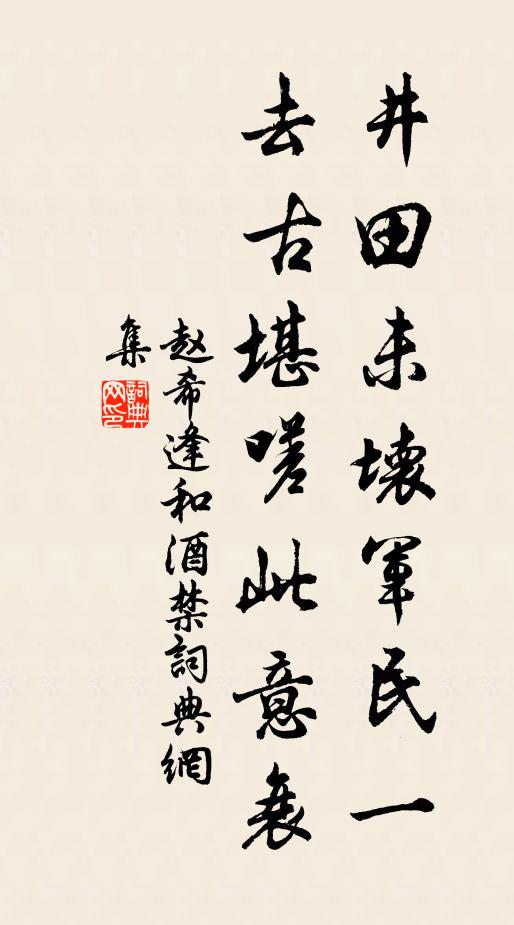 井田未壞軍民一
去古堪嗟此意衰
赵希逢和酒禁詞典網
集
詞典
网印